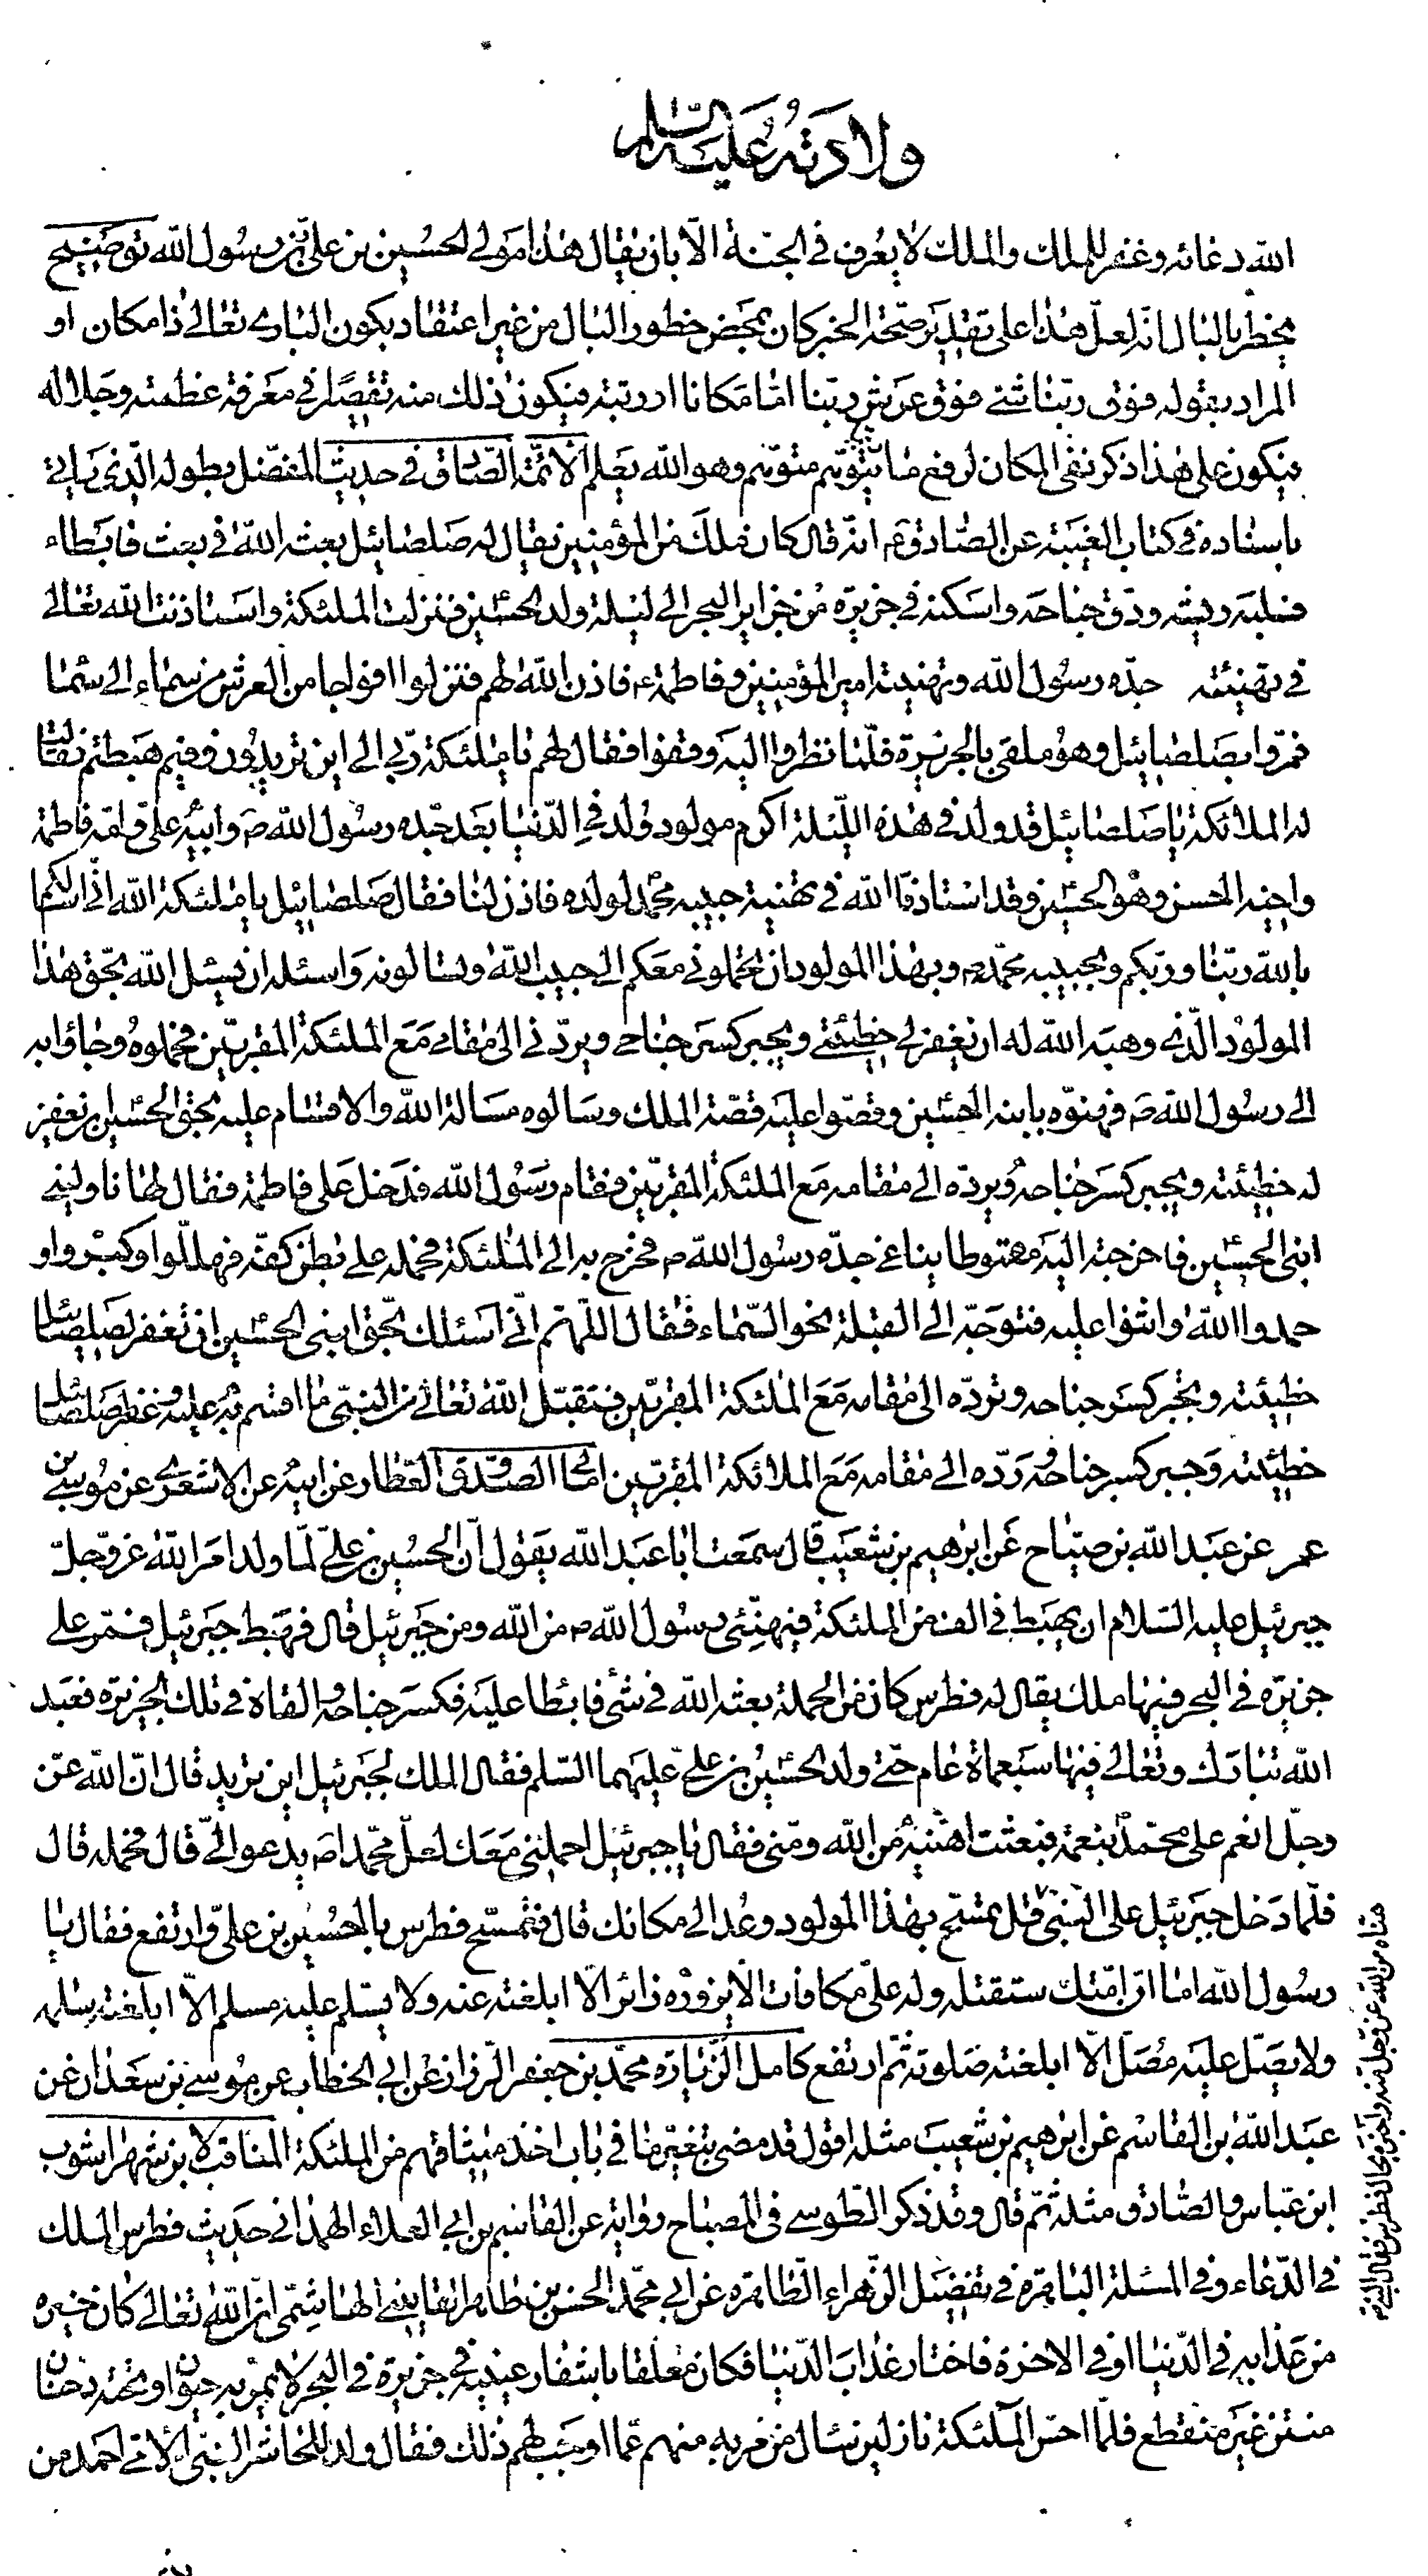 ولادته عليه السلام
الله دعائه وغفر للملك والملك لا يعرف في الجنة الا بان يقال هذا مولى الحسين بن علي بن رسول الله توضيح
يخطر بالبال انه لعل هذا على تقدير صحة الخبر كان بمحض خطور البال من غير اعتقاد بكون الباري تعالى ذا مكان او
المراد بقوله فوق ربنا شئ فوق عرش ربنا اما مكانا او رتبة فيكون ذلك منه تقصيرا في معرفة عظمته وجلاله
فيكون على هذا ذكر نفي المكان لرفع ما يتوهم متوهم وهو الله يعلم الأئمة الصادق في حديث المفضل بطوله الذي يأتي
باسناده في كتاب الغيبة عن الصادق ع انه قال كان ملك من المؤمنين يقال له صلصائيل بعثه الله في بعث فابطاء
فسلبه ريشه ودق جناحه واسكنه في جزيرة من جزاير البحر الى ليلة ولد الحسين فنزلت الملئكة واستأذنت الله تعالى
في تهنئة جده رسول الله وتهنية امير المؤمنين وفاطمة ع فاذن الله لهم فنزلوا افواجا من العرش من سماء الى سماء
فمروا بصلصائيل وهو ملقى بالجزيرة فلما نظروا اليه وقفوا فقال لهم يا ملئكة ربي الى اين تريدون وفيم هبطتم فقالت
له الملائكة يا صلصائيل قد ولد في هذه الليلة اكرم مولود ولد في الدنيا بعد جده رسول الله ص وابيه علي وامه فاطمة
واخيه الحسن وهو الحسين وقد استأذنا الله في تهنية حبيبه محمد لولده فاذن لنا فقال صلصائيل يا ملئكة الله اني اسألكم
بالله ربنا وربكم وبحبيبه محمد ص وبهذا المولود ان تحملوني معكم الى حبيب الله وتسألونه واسئله ان يسئل الله بحق هذا
المولود الذي وهبه الله له ان يغفر لي خطيئتي ويجبر كسر جناحي ويردني الى مقامي مع الملئكة المقربين فحملوه وجاؤا به
الى رسول الله ص فهنوه بابنه الحسين وقصوا عليه قصة الملك وسألوه مسألة الله والاقسام عليه بحق الحسين ان يغفر
له خطيئته ويجبر كسر جناحه ويرده الى مقامه مع الملئكة المقربين فقام رسول الله فدخل على فاطمة فقال لها ناوليني
ابني الحسين فاخرجته اليه مقموطا يناغي جده رسول الله ص فخرج به الى الملئكة فحمله على بطن كفه فهللوا وكبروا و
حمدوا الله واثنوا عليه فتوجه الى القبلة نحو السماء فقال اللهم اني اسئلك بحق ابني الحسين ان تغفر لصلصائيل
خطيئته وتجبر كسر جناحه وترده الى مقامه مع الملئكة المقربين فتقبل الله تعالى من النبي ما اقسم به عليه وغفر لصلصائيل
خطيئته وجبر كسر جناحه ورده الى مقامه مع الملائكة المقربين امالي الصدوق العطار عن ابيه عن الاشعري عن موسى بن
عمر عن عبد الله بن صباح عن ابرهيم بن شعيب قال سمعت ابا عبد الله يقول ان الحسين بن علي لما ولد امر الله عز وجل
جبرئيل عليه السلام ان يهبط في الف من الملئكة فيهنئ رسول الله ص من الله ومن جبرئيل قال فهبط جبرئيل فمر على
جزيرة في البحر فيها ملك يقال له فطرس كان من الحملة بعثه الله في شئ فابطأ عليه فكسر جناحه والقاه في تلك الجزيرة فعبد
الله تبارك وتعالى فيها سبعمأة عام حتى ولد الحسين بن علي عليهما السلم فقال الملك لجبرئيل اين تريد قال ان الله عز
وجل انعم على محمد بنعمة فبعثت اهنئه من الله ومني فقال يا جبرئيل احملني معك لعل محمدا ص يدعو الي قال فحمله قال
فلما دخل جبرئيل على النبي قل تمسح بهذا المولود وعد الى مكانك قال فتمسح فطرس بالحسين بن علي وارتفع فقال يا
رسول الله اما ان امتك ستقتله وله علي مكافات الا يزوره زائر الا ابلغته عنه ولا يسلم عليه مسلم الا ابلغته سلامه
ولا يصلي عليه مصل الا ابلغته صلوته ثم ارتفع كامل الزيارة محمد بن جعفر الرزاز عن ابي الخطاب عن موسى بن سعدان عن
عبد الله بن القاسم عن ابرهيم بن شعيب مثله اقول قد مضى بتغيير ما في باب اخذ ميثاقهم من الملئكة المناقب لابن شهراشوب
ابن عباس والصادق مثله ثم قال وقد ذكر الطوسي في المصباح رواية عن القاسم بن ابي العلاء الهمداني حديث فطرس الملك
في الدعاء وفي المسئلة الباهرة في تفضيل الزهراء الطاهرة عن ابي محمد الحسن بن طاهر القايني الهاشمي ان الله تعالى كان خيره
من عذابه في الدنيا او في الاخرة فاختار عذاب الدنيا فكان معلقا باشفار عينيه في جزيرة في البحر لا يمر به حيوان وتحته دخان
منتن غير منقطع فلما احس الملئكة نازلين سأل من مر به منهم عما اوجب لهم ذلك فقال ولد للحاشر النبي الامي احمد من
هناه من الله عز وجل منه واخبره بحال فطرس فقال النبي